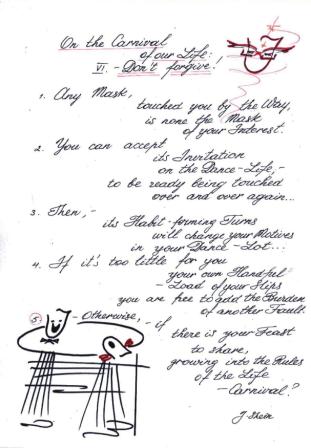 On the Carnival
of our Life:
VI. - Don't forgive!
1. Any Mask,
touched you by the Way,
is none the Mask
of your Interest.
2. You can accept
its Invitation
on the Dance-Life,-
to be ready being touched
over and over again...
3. Then,-
its Habit-forming Turns
will change your Motives
in your Dance-Lot...
4. If it's too little for you
your own Handful
-Load of your Slips
you are free to add the Burden
of another Fault.
5. - Otherwise,
- if
there is your Feast
to share,
growing into the Rules
of the Life
- Carnival?
J. Shein